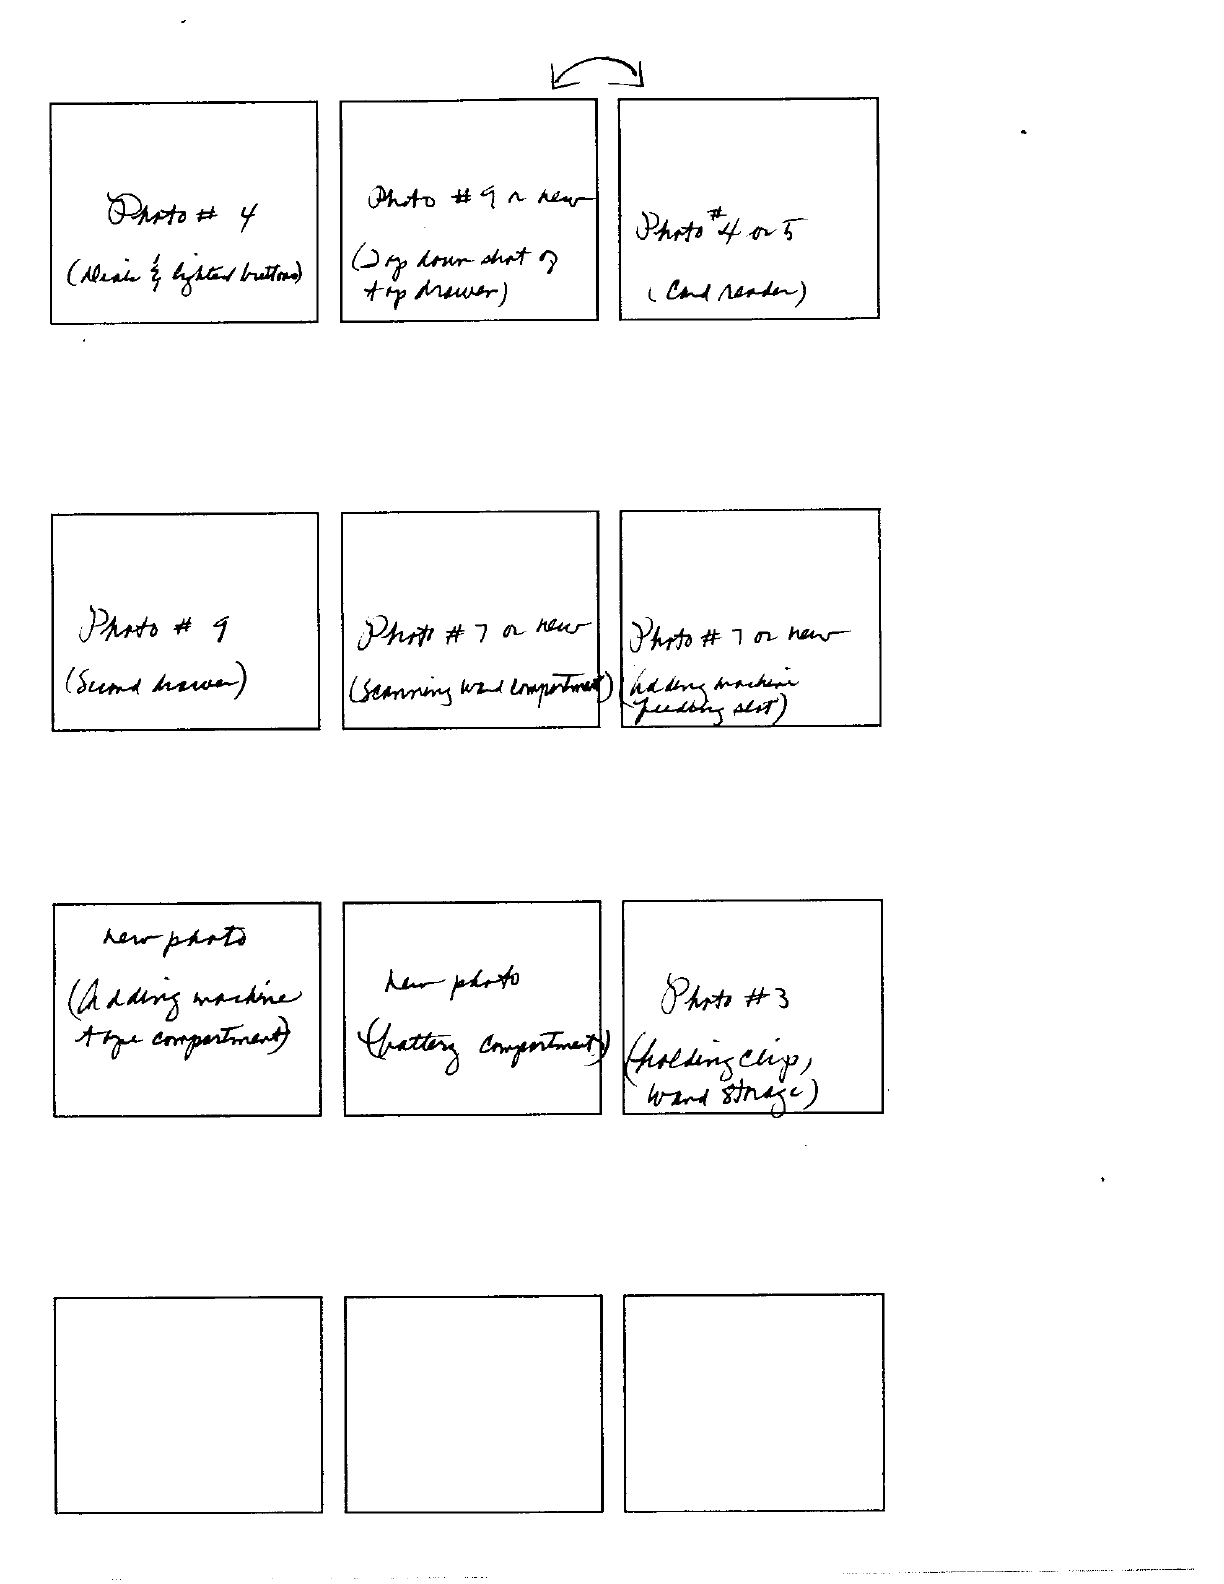 Photo # 4
(dials & lighted buttons)
Photo # 9 or new
(Top down shot of
top drawer)
Photo # 4 or 5
(Card reader)
Photo # 9
(Second drawer)
Photo # 7 or new
(Scanning wand compartment)
Photo # 7 or new
(Adding machine
feeding slot)
new photo
(Adding machine
tape compartment)
new photo
(battery compartment)
Photo # 3
(holding clip,
wand storage)